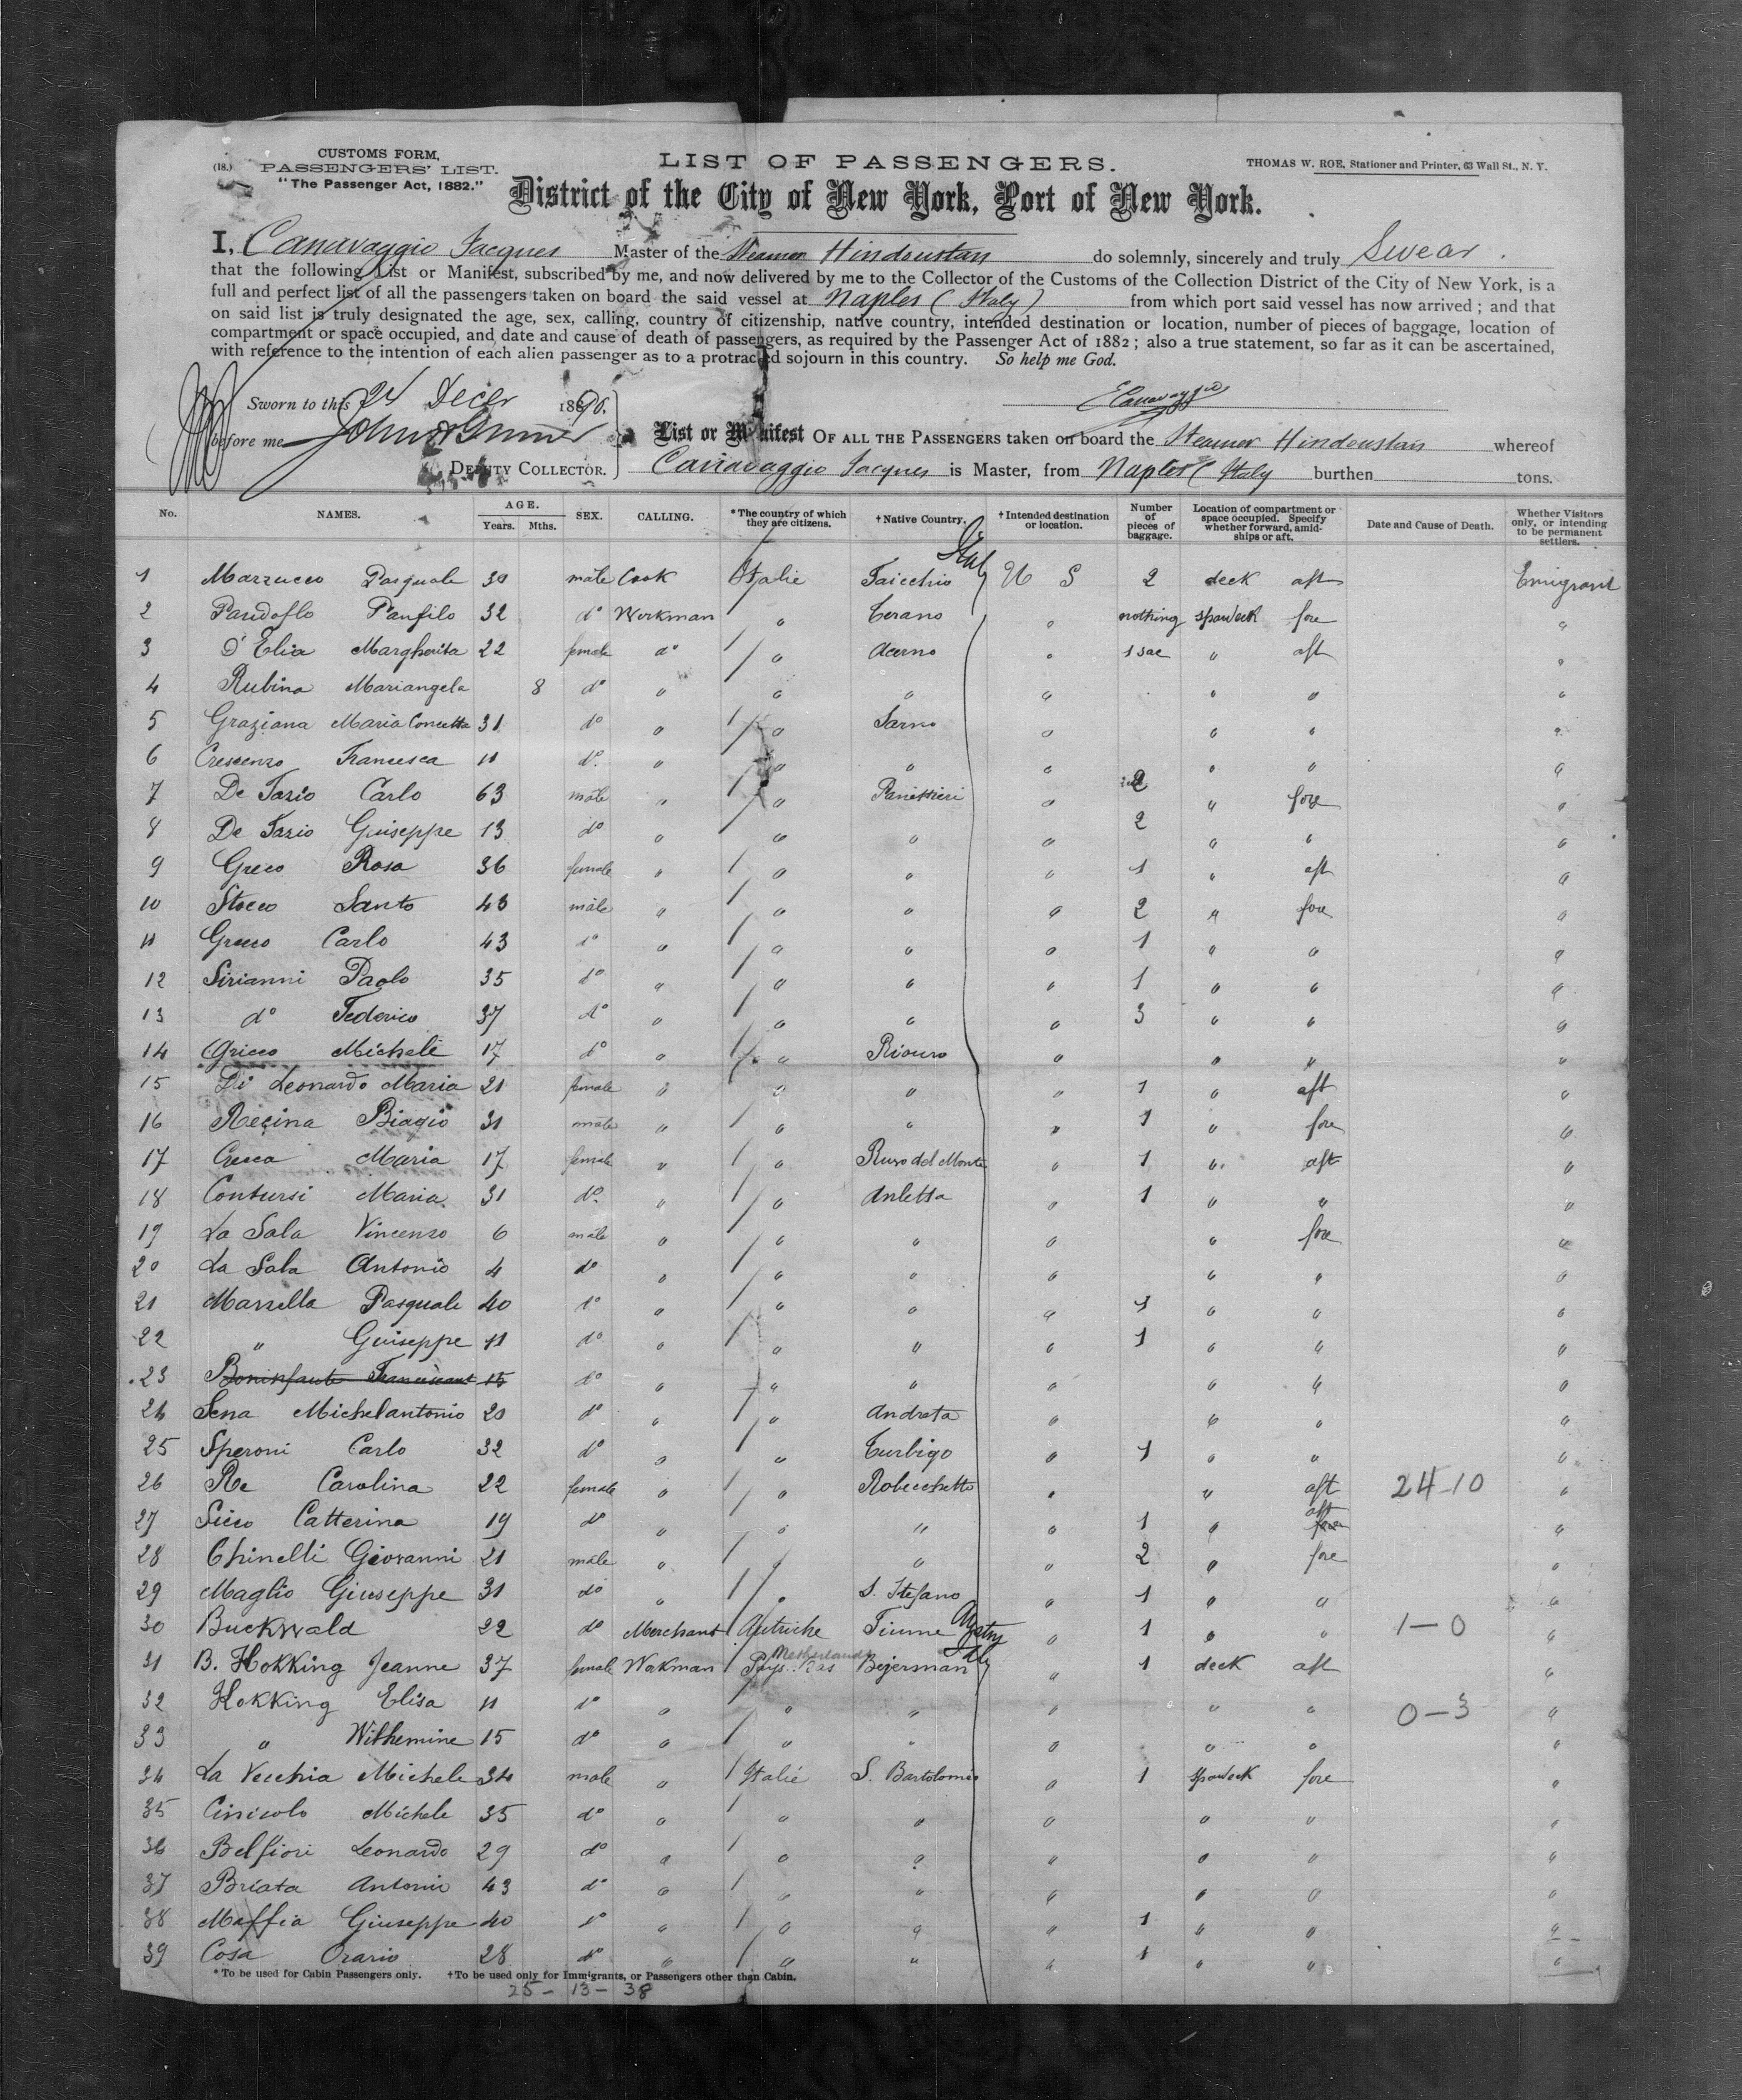 CUSTOMS FORM,
(18.) PASSENGERS' LIST.
"The Passenger Act, 1882."
LIST OF PASSENGERS.
THOMAS W. ROE, Stationer and Printer, 63 Wall St., N. Y.
District of the City of New York, Port of New York.
I, Canavaggio Jacques Master of the Steamer Hindoustan do solemnly, sincerely and truly Swear.
that the following List or Manifest, subscribed by me, and now delivered by me to the Collector of the Customs of the Collection District of the City of New York, is a
full and perfect list of all the passengers taken on board the said vessel at Naples (Italy) from which port said vessel has now arrived; and that
on said list is truly designated the age, sex, calling, country of citizenship, native country, intended destination or location, number of pieces of baggage, location of
compartment or space occupied, and date and cause of death of passengers, as required by the Passenger Act of 1882; also a true statement, so far as it can be ascertained,
with reference to the intention of each alien passenger as to a protracted sojourn in this country. So help me God.
Sworn to this 24 Decer 1890.
Canavaggio
before me
List or Manifest OF ALL THE PASSENGERS taken on board the Steamer Hindoustan whereof
DEPUTY COLLECTOR. Canavaggio Jacques is Master, from Naples (Italy burthen tons.
No. NAMES. AGE. Years. Mths. SEX. CALLING. *The country of which they are citizens. †Native Country. †Intended destination or location. Number of pieces of baggage. Location of compartment or space occupied. Specify whether forward, amidships or aft. Date and Cause of Death. Whether Visitors only, or intending to be permanent settlers.
Italy
1 Mazzucco Pasquale 30 male Cook Italie Faicchio U S 2 deck aft Emigrant
2 Pandoflo Panfilo 32 do Workman " Terano " nothing spardeck fore "
3 D'Elia Margherita 22 female do " Acerno " 1 sac " aft "
4 Rubina Mariangela 8 do " " " " " " "
5 Graziana Maria Concetta 31 do " " Sarno " " " "
6 Crescenzo Francesca 11 do " " " " " " "
7 De Fazio Carlo 63 male " " Panettieri " 2 " fore "
8 De Fazio Guiseppe 13 do " " " " 2 " " "
9 Greco Rosa 36 female " " " " 1 " aft "
10 Stocco Santo 43 male " " " " 2 " fore "
11 Greco Carlo 43 do " " " " 1 " " "
12 Sirianni Paolo 35 do " " " " 1 " " "
13 do Federico 37 do " " " " 3 " " "
14 Grieco Michele 17 do " " Rionro " " " "
15 Di Leonardo Maria 21 female " " " " 1 " aft "
16 Recina Biagio 31 male " " " " 1 " fore "
17 Cresca Maria 17 female " " Ruvo del Monte " 1 " aft "
18 Contursi Maria 31 do " " Anletta " 1 " " "
19 La Sala Vincenzo 6 male " " " " " fore "
20 La Sala Antonio 4 do " " " " " " "
21 Marzella Pasquale 40 do " " " " 1 " " "
22 " Guiseppe 11 do " " " " 1 " " "
23 Boninfante 15 do " " " " " " "
24 Sena Michelantonio 20 do " " Andreta " " " "
25 Speroni Carlo 32 do " " Turbigo " 1 " " "
26 Re Carolina 22 female " " Robecchetto " " aft 24-10 "
27 Sicco Catterina 19 do " " " " 1 " fore aft "
28 Chinelli Giovanni 21 male " " " " 2 " fore "
29 Maglio Giuseppe 31 do " " S. Stefano " 1 " " "
30 Buckwald 22 do Merchant Autriche Fiume Austry " 1 " " 1-0 "
31 B. Hokking Jeanne 37 female Workman Pays Bas Netherlands Bejerman " 1 deck aft "
32 Hokking Elisa 11 do " " " " " " 0-3 "
33 " Withemine 15 do " " " " " " "
34 La Vecchia Michele 34 male " Italie S. Bartolomeo " 1 spardeck fore "
35 Cinicolo Michele 35 do " " " " " " "
36 Belfiori Leonardo 29 do " " " " " " "
37 Briata Antonio 43 do " " " " " " "
38 Maffia Giuseppe 40 do " " " " 1 " " "
39 Cosa Orazio 28 do " " " " 1 " " "
*To be used for Cabin Passengers only. †To be used only for Immigrants, or Passengers other than Cabin.
25 - 13 - 38